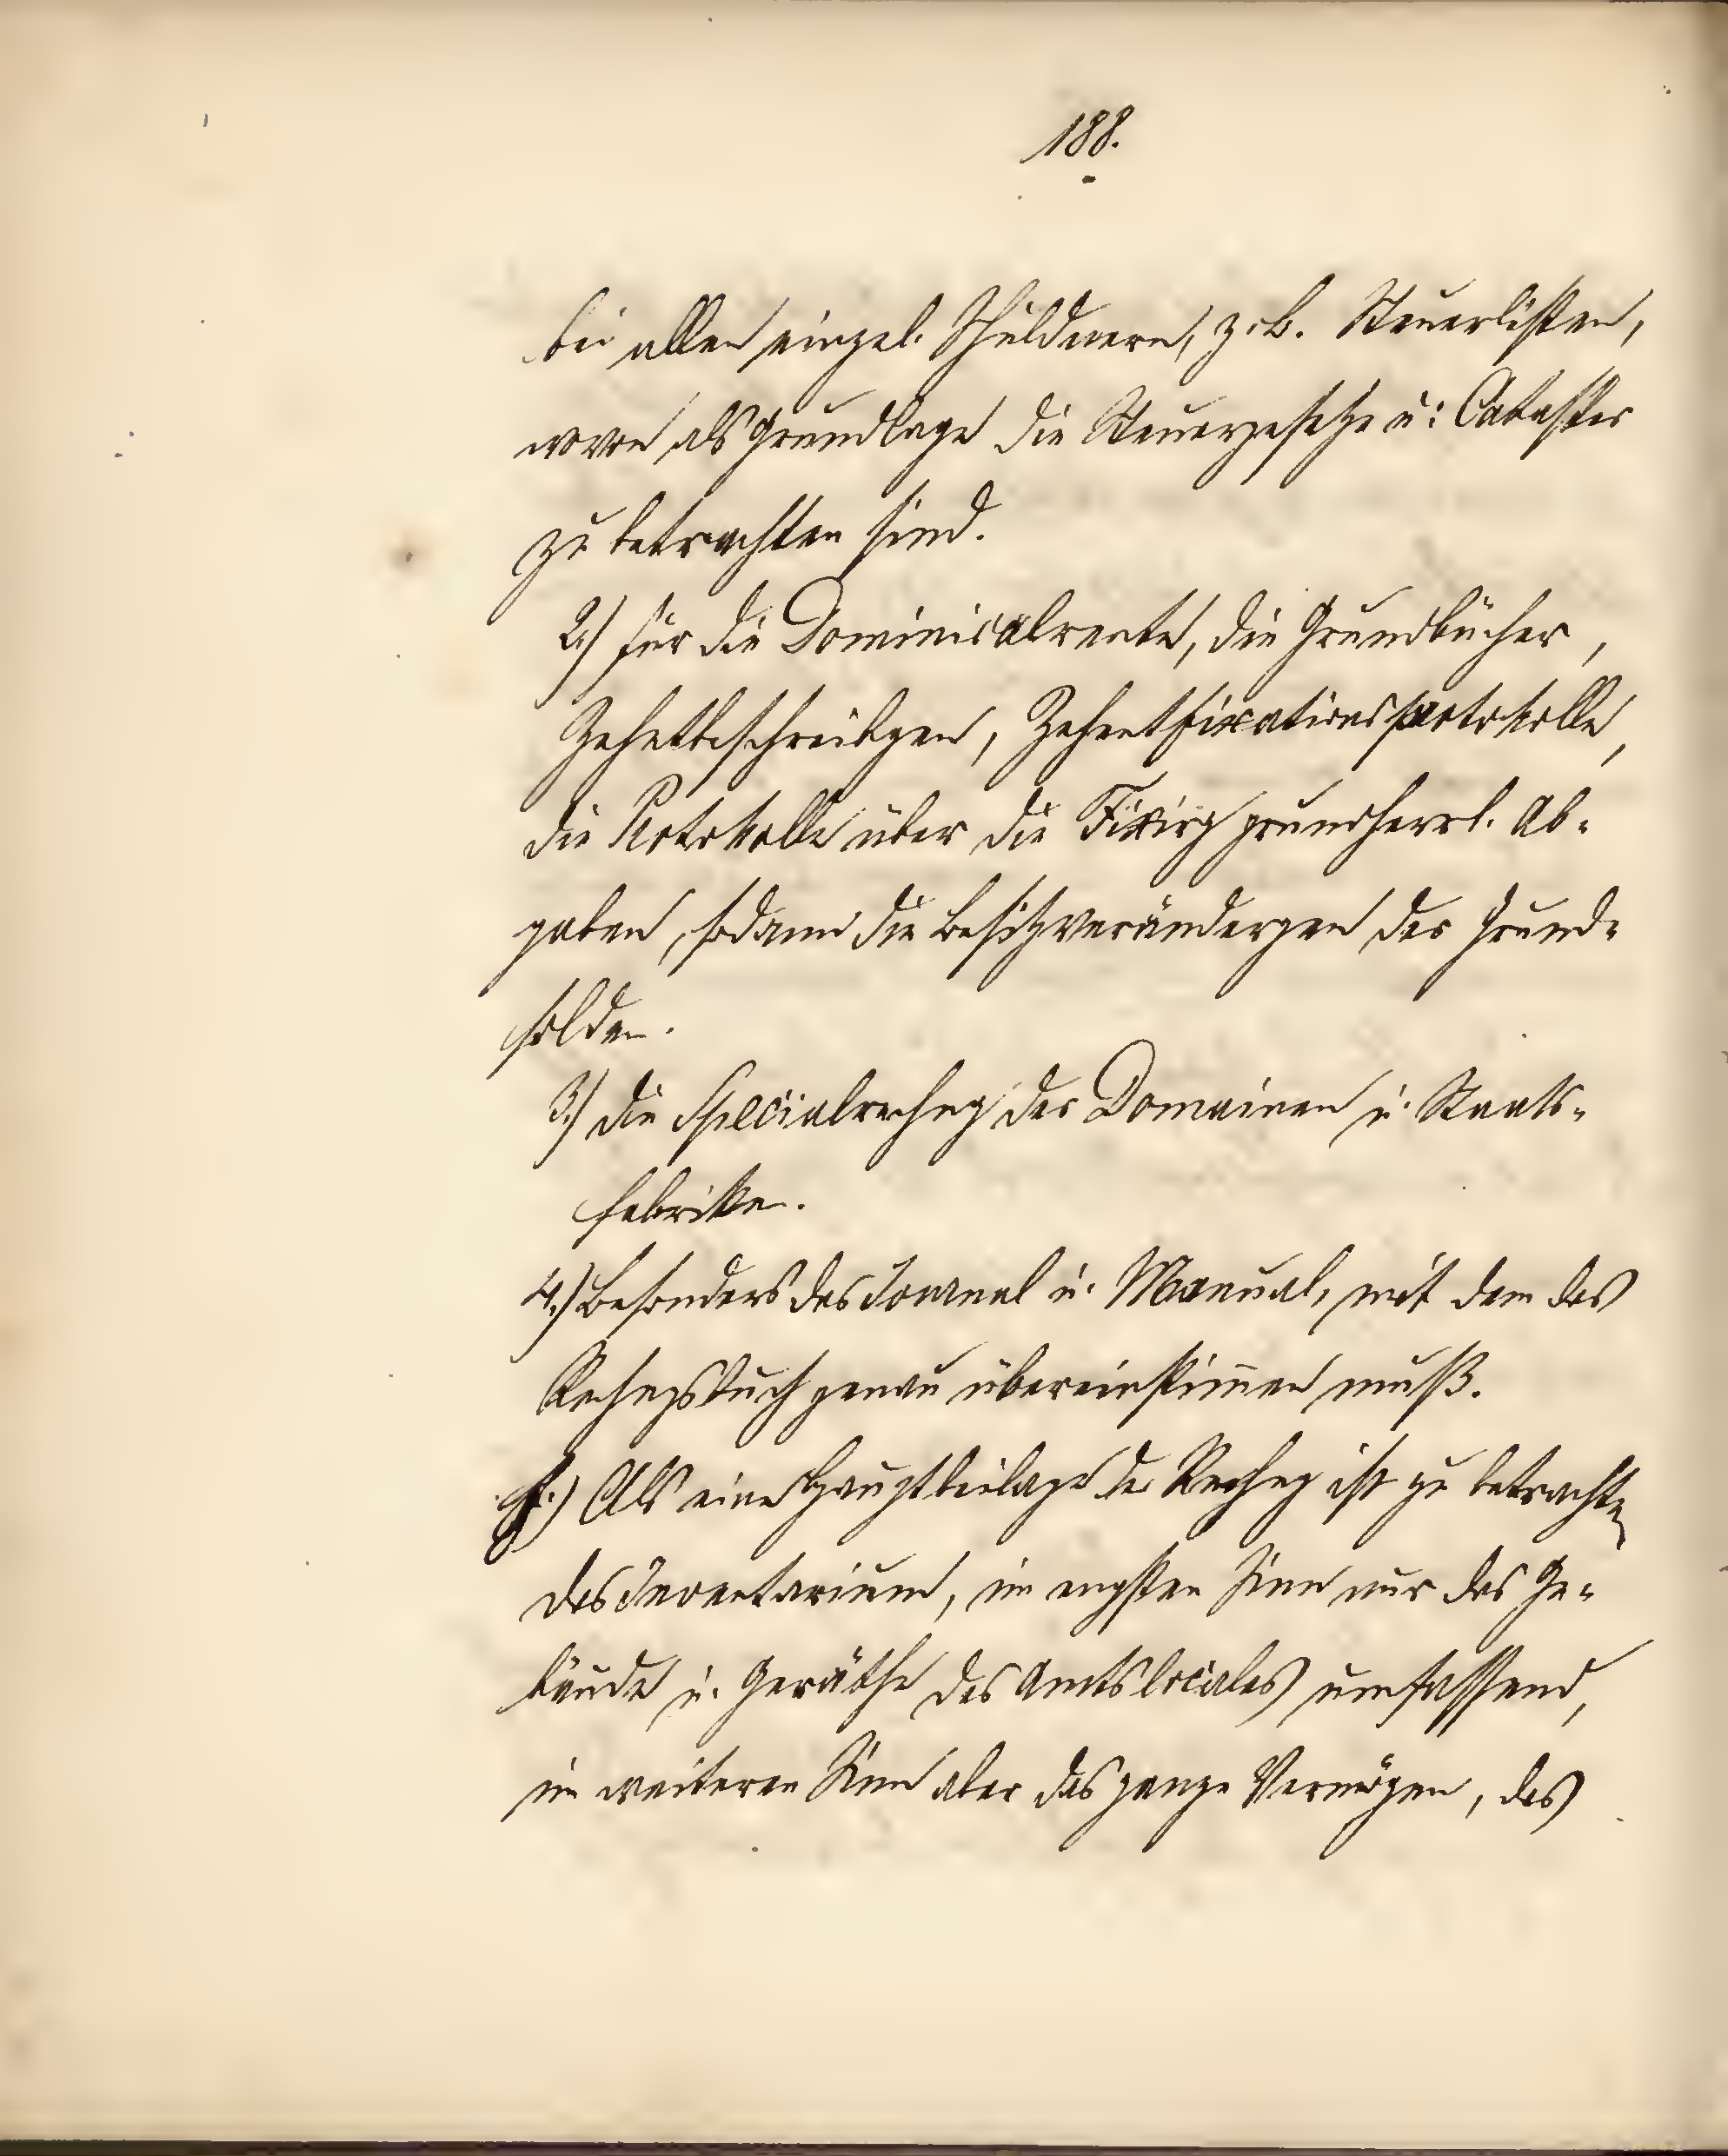 188.
bei allen einzel. Schuldnern, z. B. Steuerlisten,
wovon als Grundlage die Steuergesetze u: Cataster
zu betrachten sind.
2.) für die Dominicalrente, die Grundbücher,
Zehetbeschreibgen, Zehentfixationsprotokolle,
die Protokolle über die Fixirg grundherrl. Ab-
gaben, sodann die Besitzverändergen der Grund-
holden.
3.) die Specialrechng der Domainen u. Staats-
fabriken.
4.) Besonders das Journal u. Manual, mit dem das
Rechngsbuch genau übereinstim̄en muß.
f.) Als eine Hauptbeilage der Rechng ist zu betrachten
das Inventarium, im engsten Sinn nur das Ge-
bäude u. Geräthe des Amtslocales umfassend,
im weiteren Sinn aber das ganze Vermögen, das